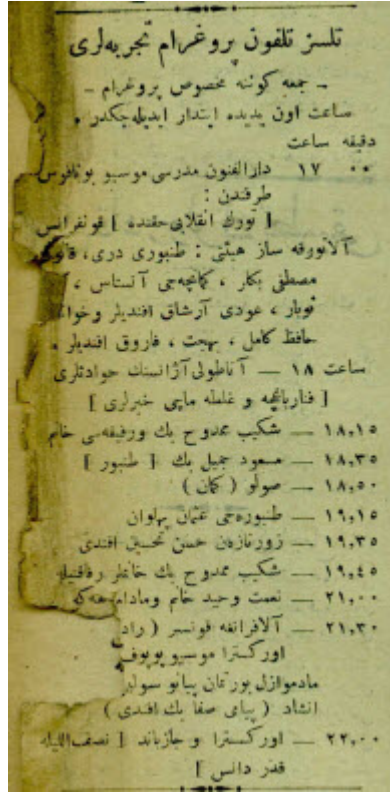 تلسز تلفون پروغرام تجربه‌لری
ـ جمعه كوننه مخصوص پروغرام ـ
ساعت اون يديده ابتدار ايديله‌جكدر .
دقيقه ساعت
٠٠ ١٧ دارالفنون مدرسی موسيو بونافوس
طرفندن :
[ تورك انقلابی حقنده ] قونفرانس
آلاتورقه ساز هيئتی : طنبوری دری،
مصطفی بكار ، كمانچه‌جی آنستاس ،
نوبار ، عودی آرشاق افنديلر و
حافظ كامل ، بهجت ، فاروق افنديلر .
ساعت ١٨ — آناطولی آژانسنك حوادثلری
[ فنارباغچه و غلطه ماچی خبرلری ]
١٨،١٥ — شكيب ممدوح بك ورفيقه‌سی خانم
١٨،٣٥ — مسعود جميل بك [ طنبور ]
١٨،٥٠ — صولو ( كمان )
١٩،١٥ — طنبوره‌جی عثمان پهلوان
١٩،٣٥ — زورنازن حسن تحسين افندی
١٩،٤٥ — شكيب ممدوح بك خانملر
٢١،٠٠ — نعمت وحيد خانم ومادام
٢١،٣٠ — آلافرانغه قونسر ( راد
اوركسترا موسيو پوپوف
مادموازل بورتمان پيانو سولو
انشاد ( پيامی صفا بك افندی )
٢٢،٠٠ — اوركسترا و جازباند [ نصف‌الليله
قدر دانس ]